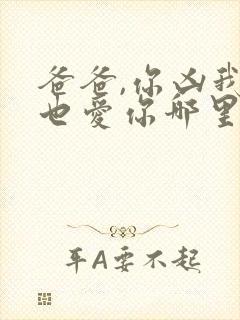 爸爸,你凶我
也爱你哪里
平A要不起